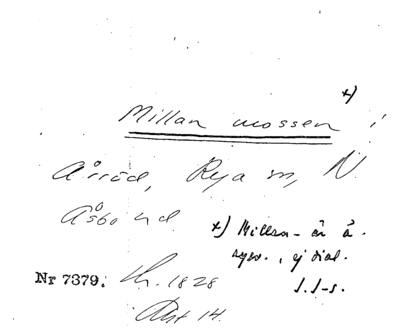 Millan mossen x) i
Årröd, Rya sn, N
Åsbo hd.
x) Millan- är å
rysv., ej dial.
J.J-s.
Nr 7379. Lh. 1828
Akt 14.